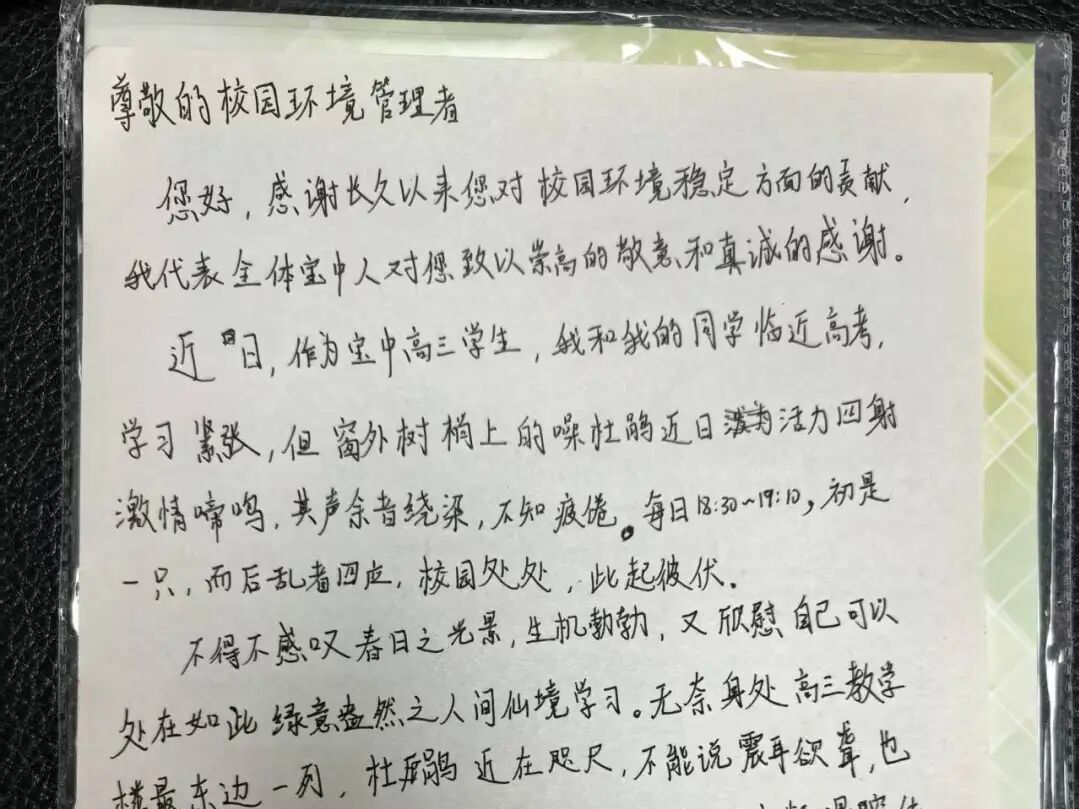 尊敬的校园环境管理者
您好，感谢长久以来您对校园环境稳定方面的贡献，
我代表全体宝中人对您致以崇高的敬意和真诚的感谢。
近日，作为宝中高三学生，我和我的同学临近高考，
学习紧张，但窗外树梢上的噪杜鹃近日活力四射
激情啼鸣，其声余音绕梁，不知疲倦。每日18:30~19:10，初是
一只，而后乱者四应，校园处处，此起彼伏。
不得不感叹春日之光景，生机勃勃，又欣慰自己可以
处在如此绿意盎然之人间仙境学习。无奈身处高三教学
楼最东边一列，杜鹃近在咫尺，不能说震耳欲聋，也